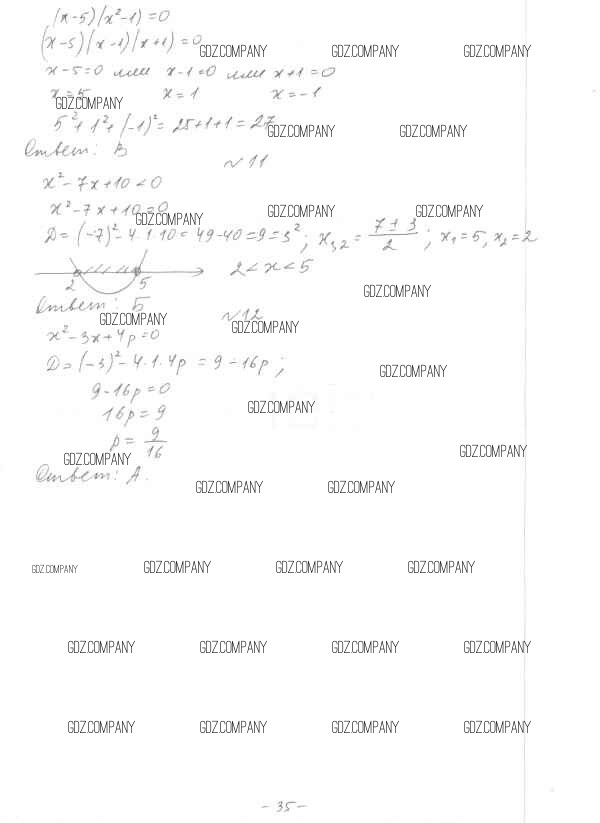 (x-5)(x²-1)=0
(x-5)(x-1)(x+1)=0
GDZ.COMPANY GDZ.COMPANY GDZ.COMPANY
x-5=0 или x-1=0 или x+1=0
x=5 x=1 x=-1
GDZ.COMPANY
5²+1²+(-1)²=25+1+1=27
GDZ.COMPANY GDZ.COMPANY
Ответ: В
№11
x²-7x+10<0
x²-7x+10=0
GDZ.COMPANY GDZ.COMPANY GDZ.COMPANY
D=(-7)²-4·1·10=49-40=9=3²; x₁,₂=(7±3)/2; x₁=5, x₂=2
2 5 2<x<5
GDZ.COMPANY
Ответ: Б
№12
GDZ.COMPANY GDZ.COMPANY
x²-3x+4p=0
D=(-3)²-4·1·4p=9-16p;
GDZ.COMPANY
9-16p=0
16p=9
GDZ.COMPANY
p=9/16
GDZ.COMPANY GDZ.COMPANY
Ответ: А.
GDZ.COMPANY GDZ.COMPANY
GDZ.COMPANY GDZ.COMPANY GDZ.COMPANY GDZ.COMPANY
GDZ.COMPANY GDZ.COMPANY GDZ.COMPANY GDZ.COMPANY
GDZ.COMPANY GDZ.COMPANY GDZ.COMPANY GDZ.COMPANY
-35-